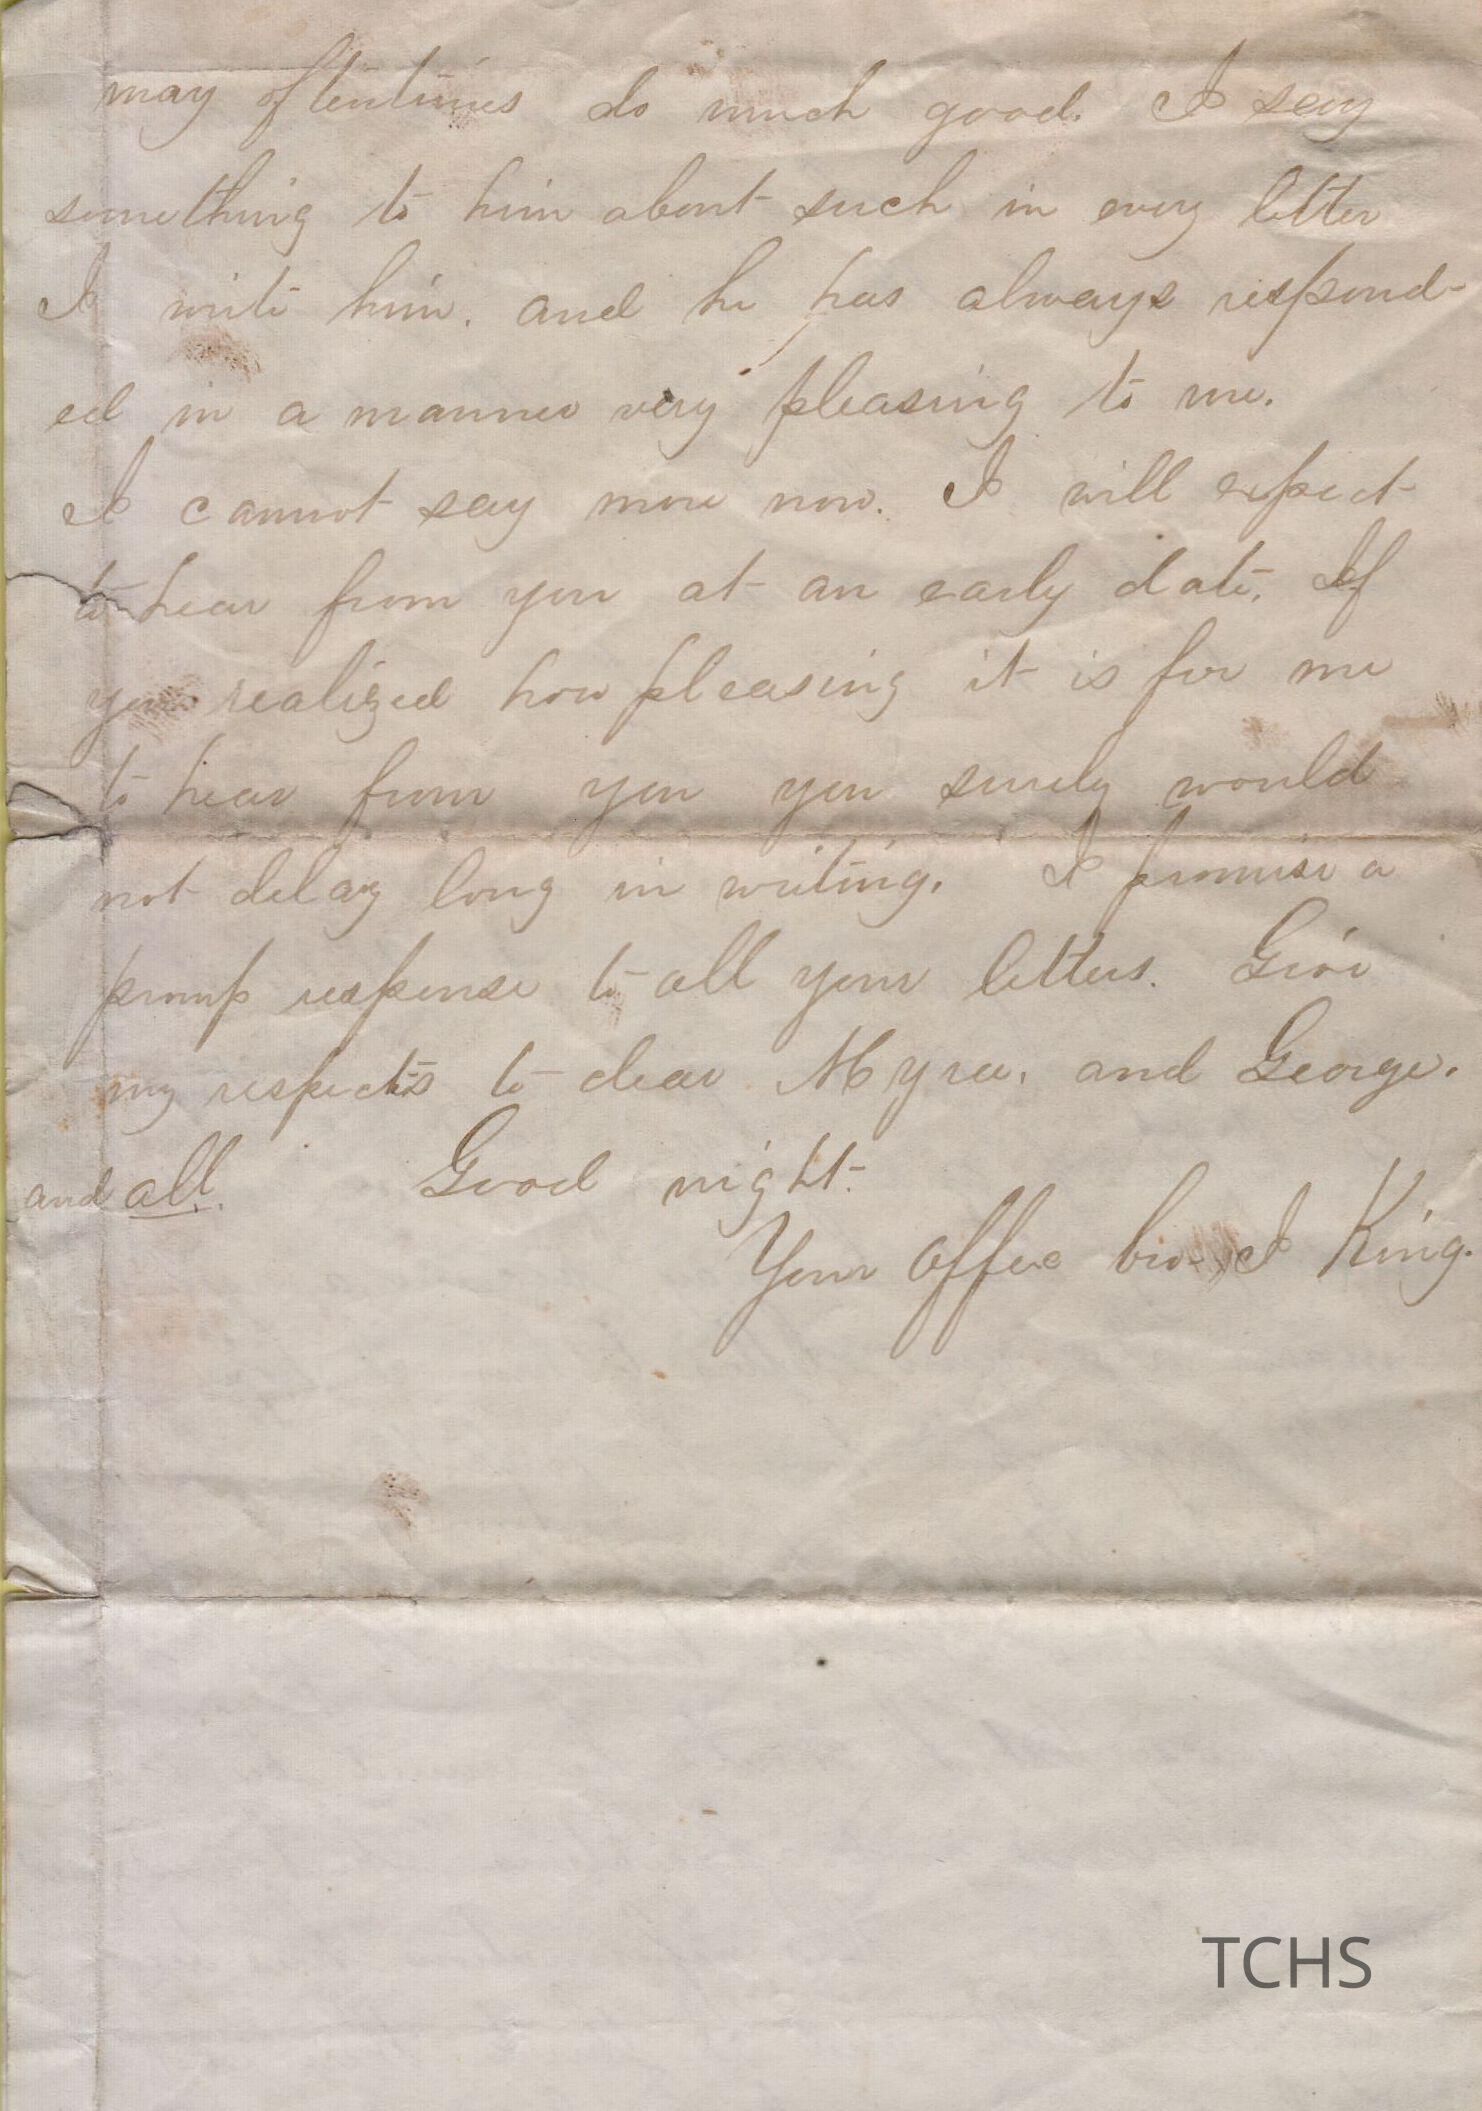 may oftentimes do much good. I say
something to him about such in every letter
I write him. and he has always respond-
ed in a manner very pleasing to me.
I cannot say more now. I will expect
to hear from you at an early date. If
you realized how pleasing it is for me
to hear from you you surely would
not delay long in writing. I promise a
promp response to all your letters. Give
my respects to dear Myra. and George.
and all. Good night.
Your affec bro. I King.
TCHS